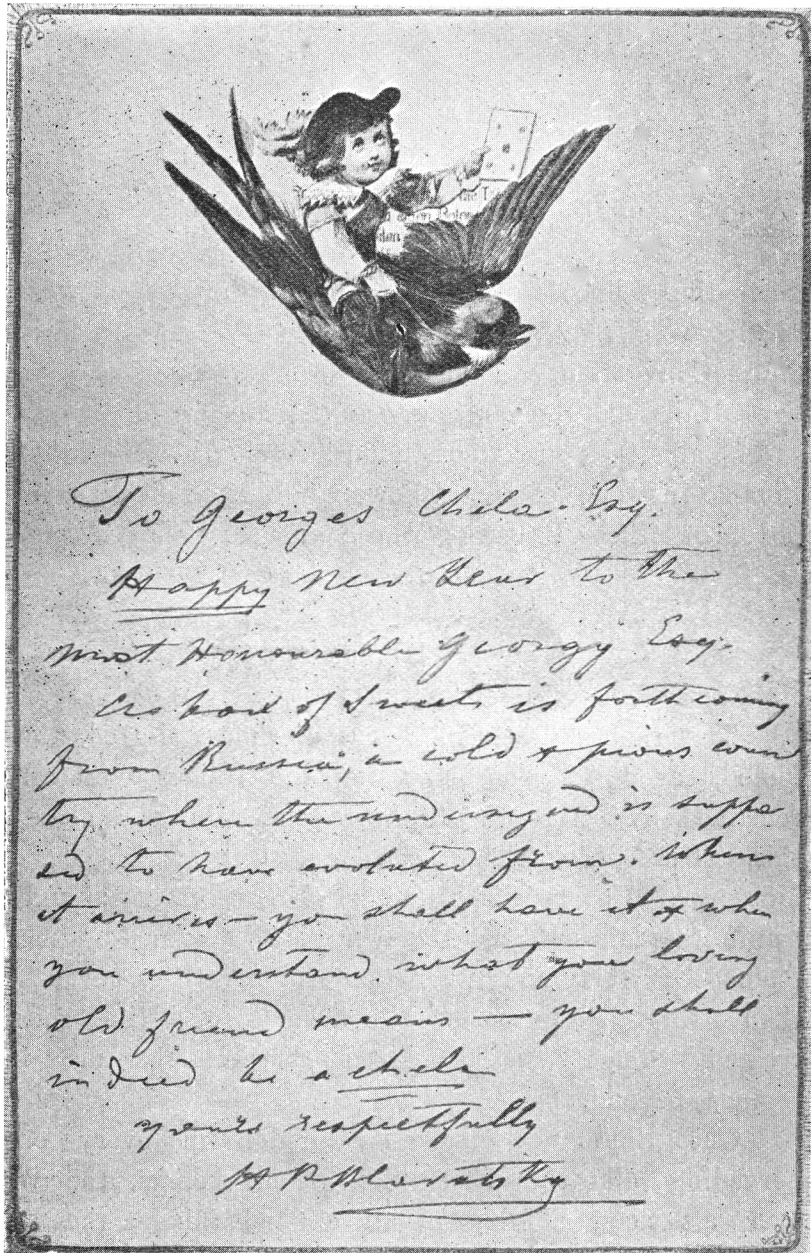 To Georges Chela. Esq.
Happy New Year to the
most Honourable Georgy Esq.
A box of Sweets is forthcoming
from Russia, a cold & pious coun
try where the undersigned is suppo
sed to have evoluted from. When
it arrives — you shall have it & when
you understand what your loving
old friend means — you shall
indeed be a chela
yours respectfully
H P Blavatsky